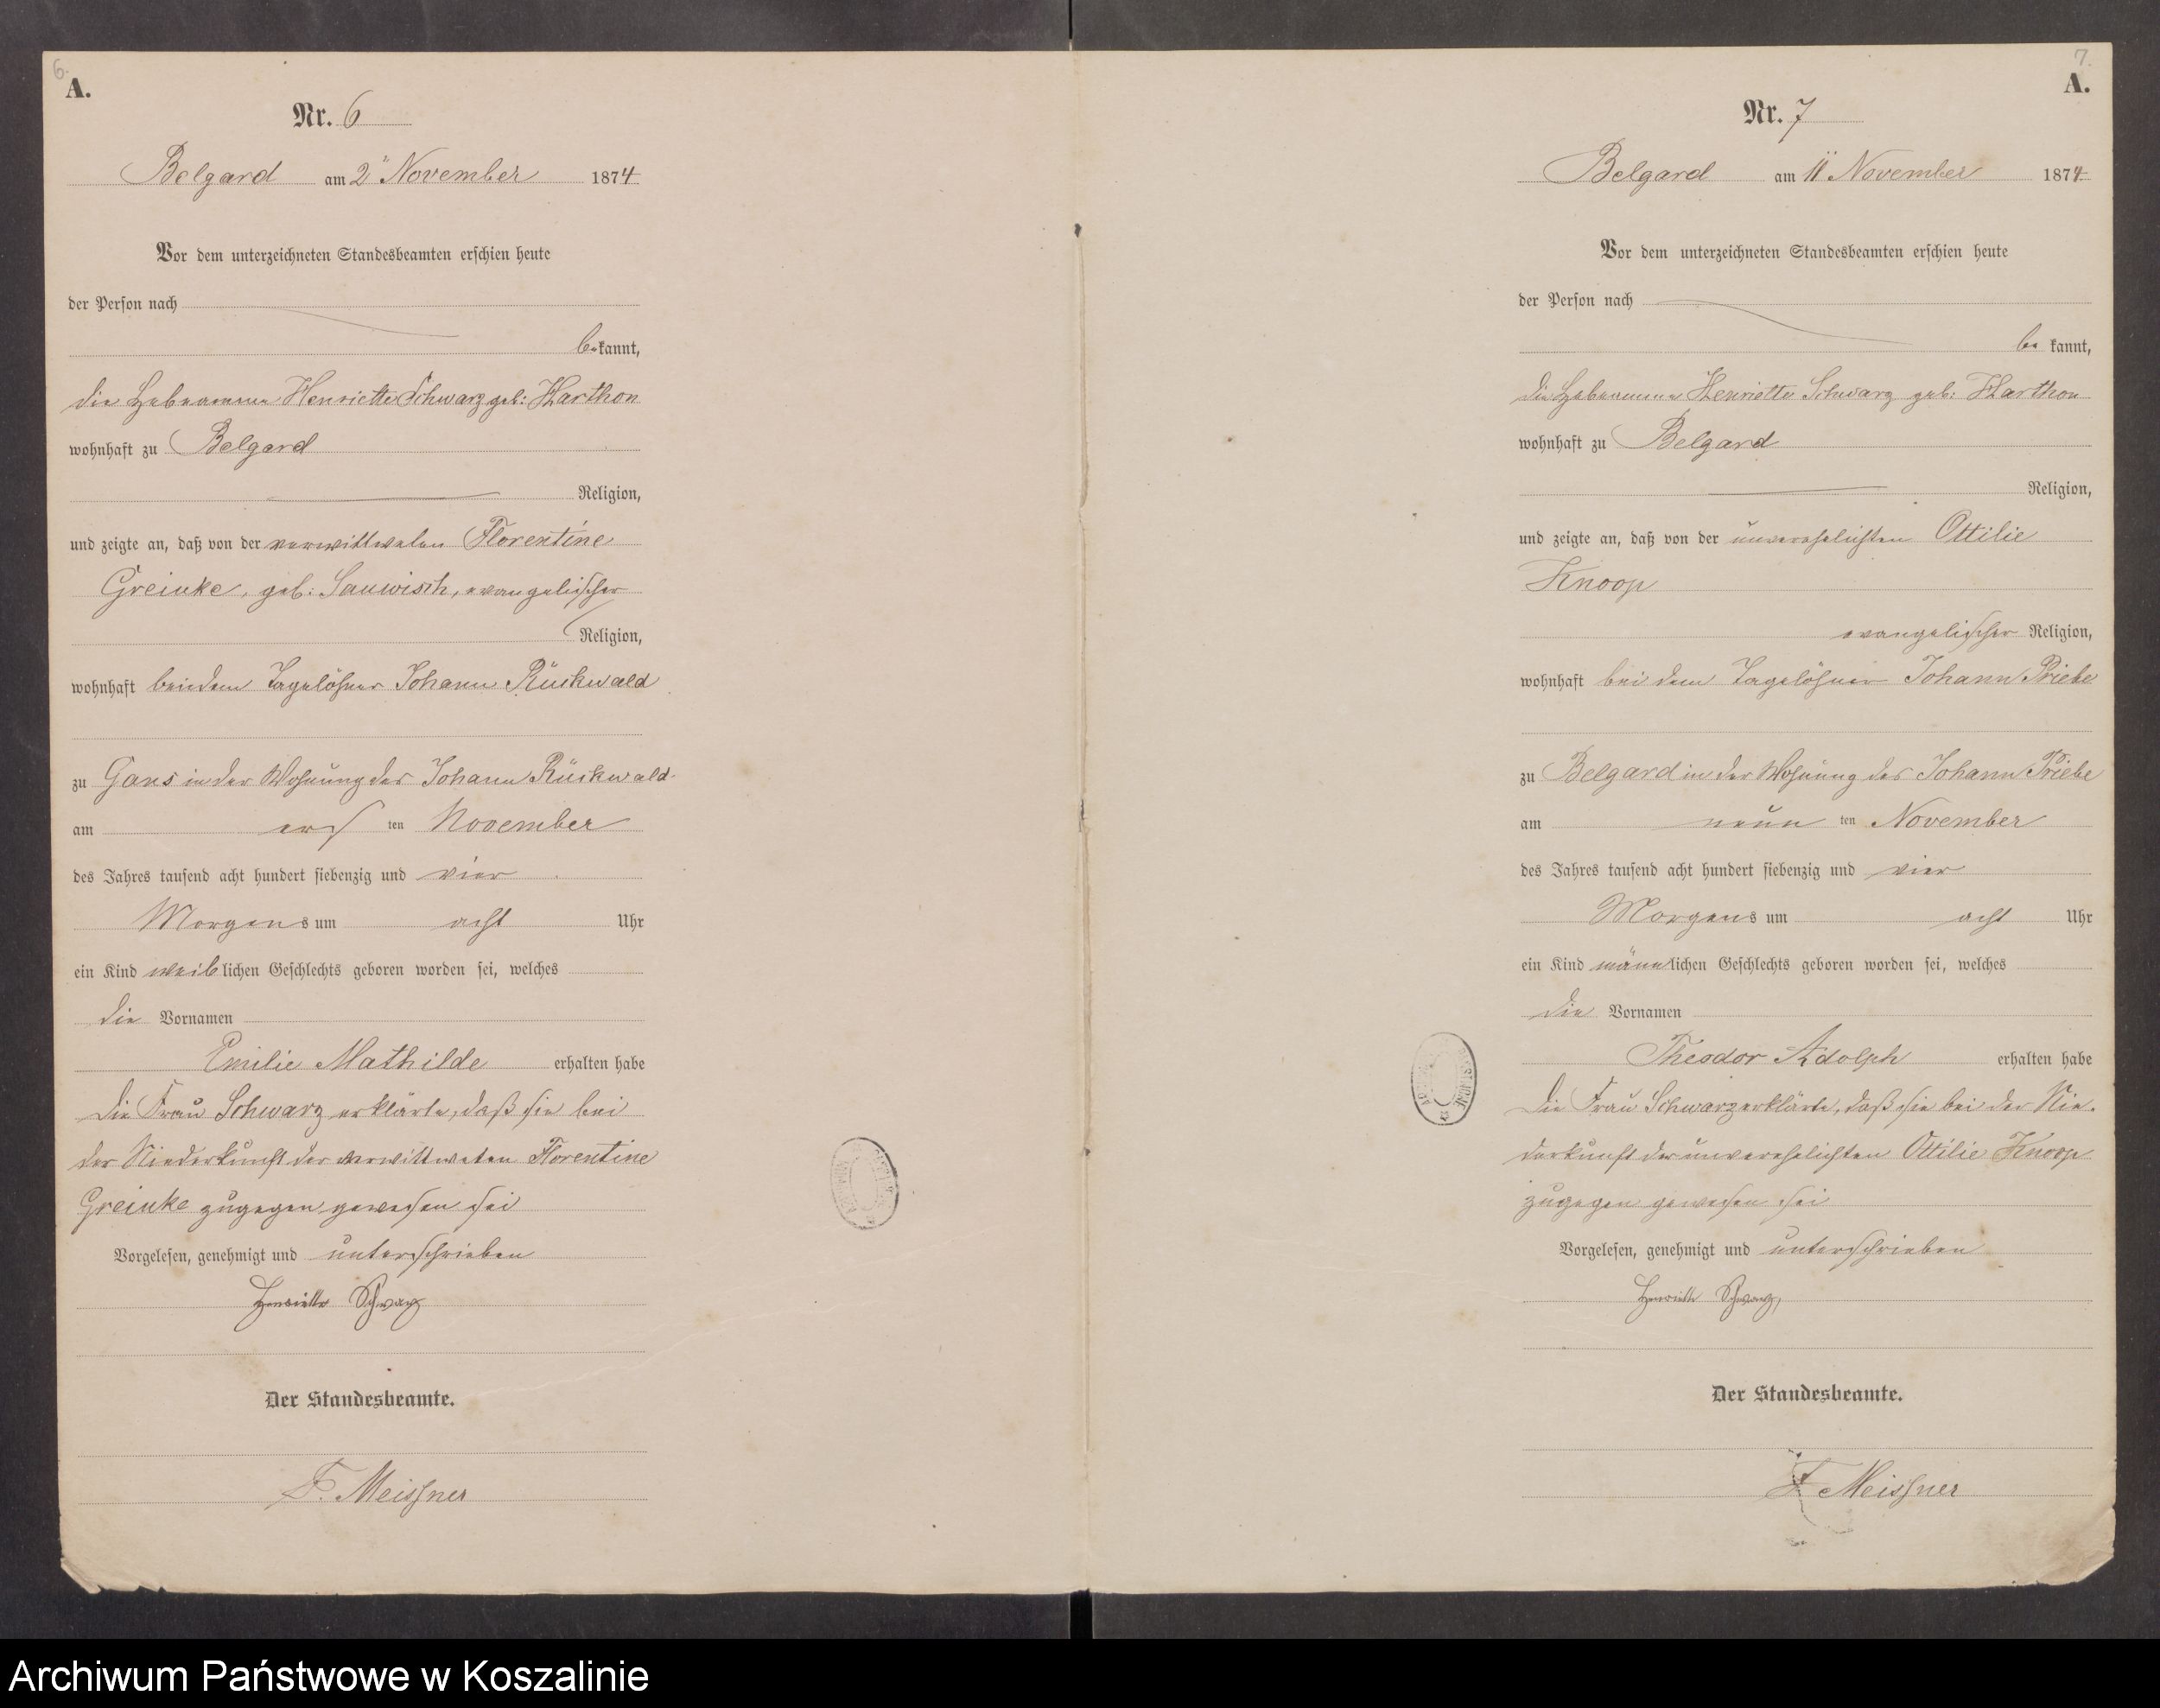 6.
A.
Nr. 6
Belgard am 2 November 1874
Vor dem unterzeichneten Standesbeamten erschien heute
der Person nach
be kannt,
die Hebeamme Henriette Schwarz geb: Harthon
wohnhaft zu Belgard
Religion,
und zeigte an, daß von der verwittweten Florentine
Greinke, geb: Sauwisch, evangelischer
Religion,
wohnhaft bei dem Tagelöhner Johann Rückwald
zu Gans in der Wohnung des Johann Rückwald
am ers ten November
des Jahres tausend acht hundert siebenzig und vier
Morgens um acht Uhr
ein Kind weiblichen Geschlechts geboren worden sei, welches
die Vornamen
Emilie Mathilde erhalten habe
Die Frau Schwarz erklärte, daß sie bei
der Niederkunft der verwittweten Florentine
Greinke zugegen gewesen sei
Vorgelesen, genehmigt und unterschrieben
Henriette Schwarz
Der Standesbeamte.
F. Meissner
7.
A.
Nr. 7
Belgard am 11 November 1874
Vor dem unterzeichneten Standesbeamten erschien heute
der Person nach
be kannt,
die Hebeamme Henriette Schwarz geb: Harthon
wohnhaft zu Belgard
Religion,
und zeigte an, daß von der unverehelichten Ottilie
Knoop
evangelischer Religion,
wohnhaft bei dem Tagelöhner Johann Priebe
zu Belgard in der Wohnung des Johann Priebe
am neun ten November
des Jahres tausend acht hundert siebenzig und vier
Morgens um acht Uhr
ein Kind männlichen Geschlechts geboren worden sei, welches
die Vornamen
Theodor Adolph erhalten habe
Die Frau Schwarz erklärte, daß sie bei der Nie-
derkunft der unverehelichten Ottilie Knoop
zugegen gewesen sei
Vorgelesen, genehmigt und unterschrieben
Henriette Schwarz,
Der Standesbeamte.
F Meissner
Archiwum Państwowe w Koszalinie